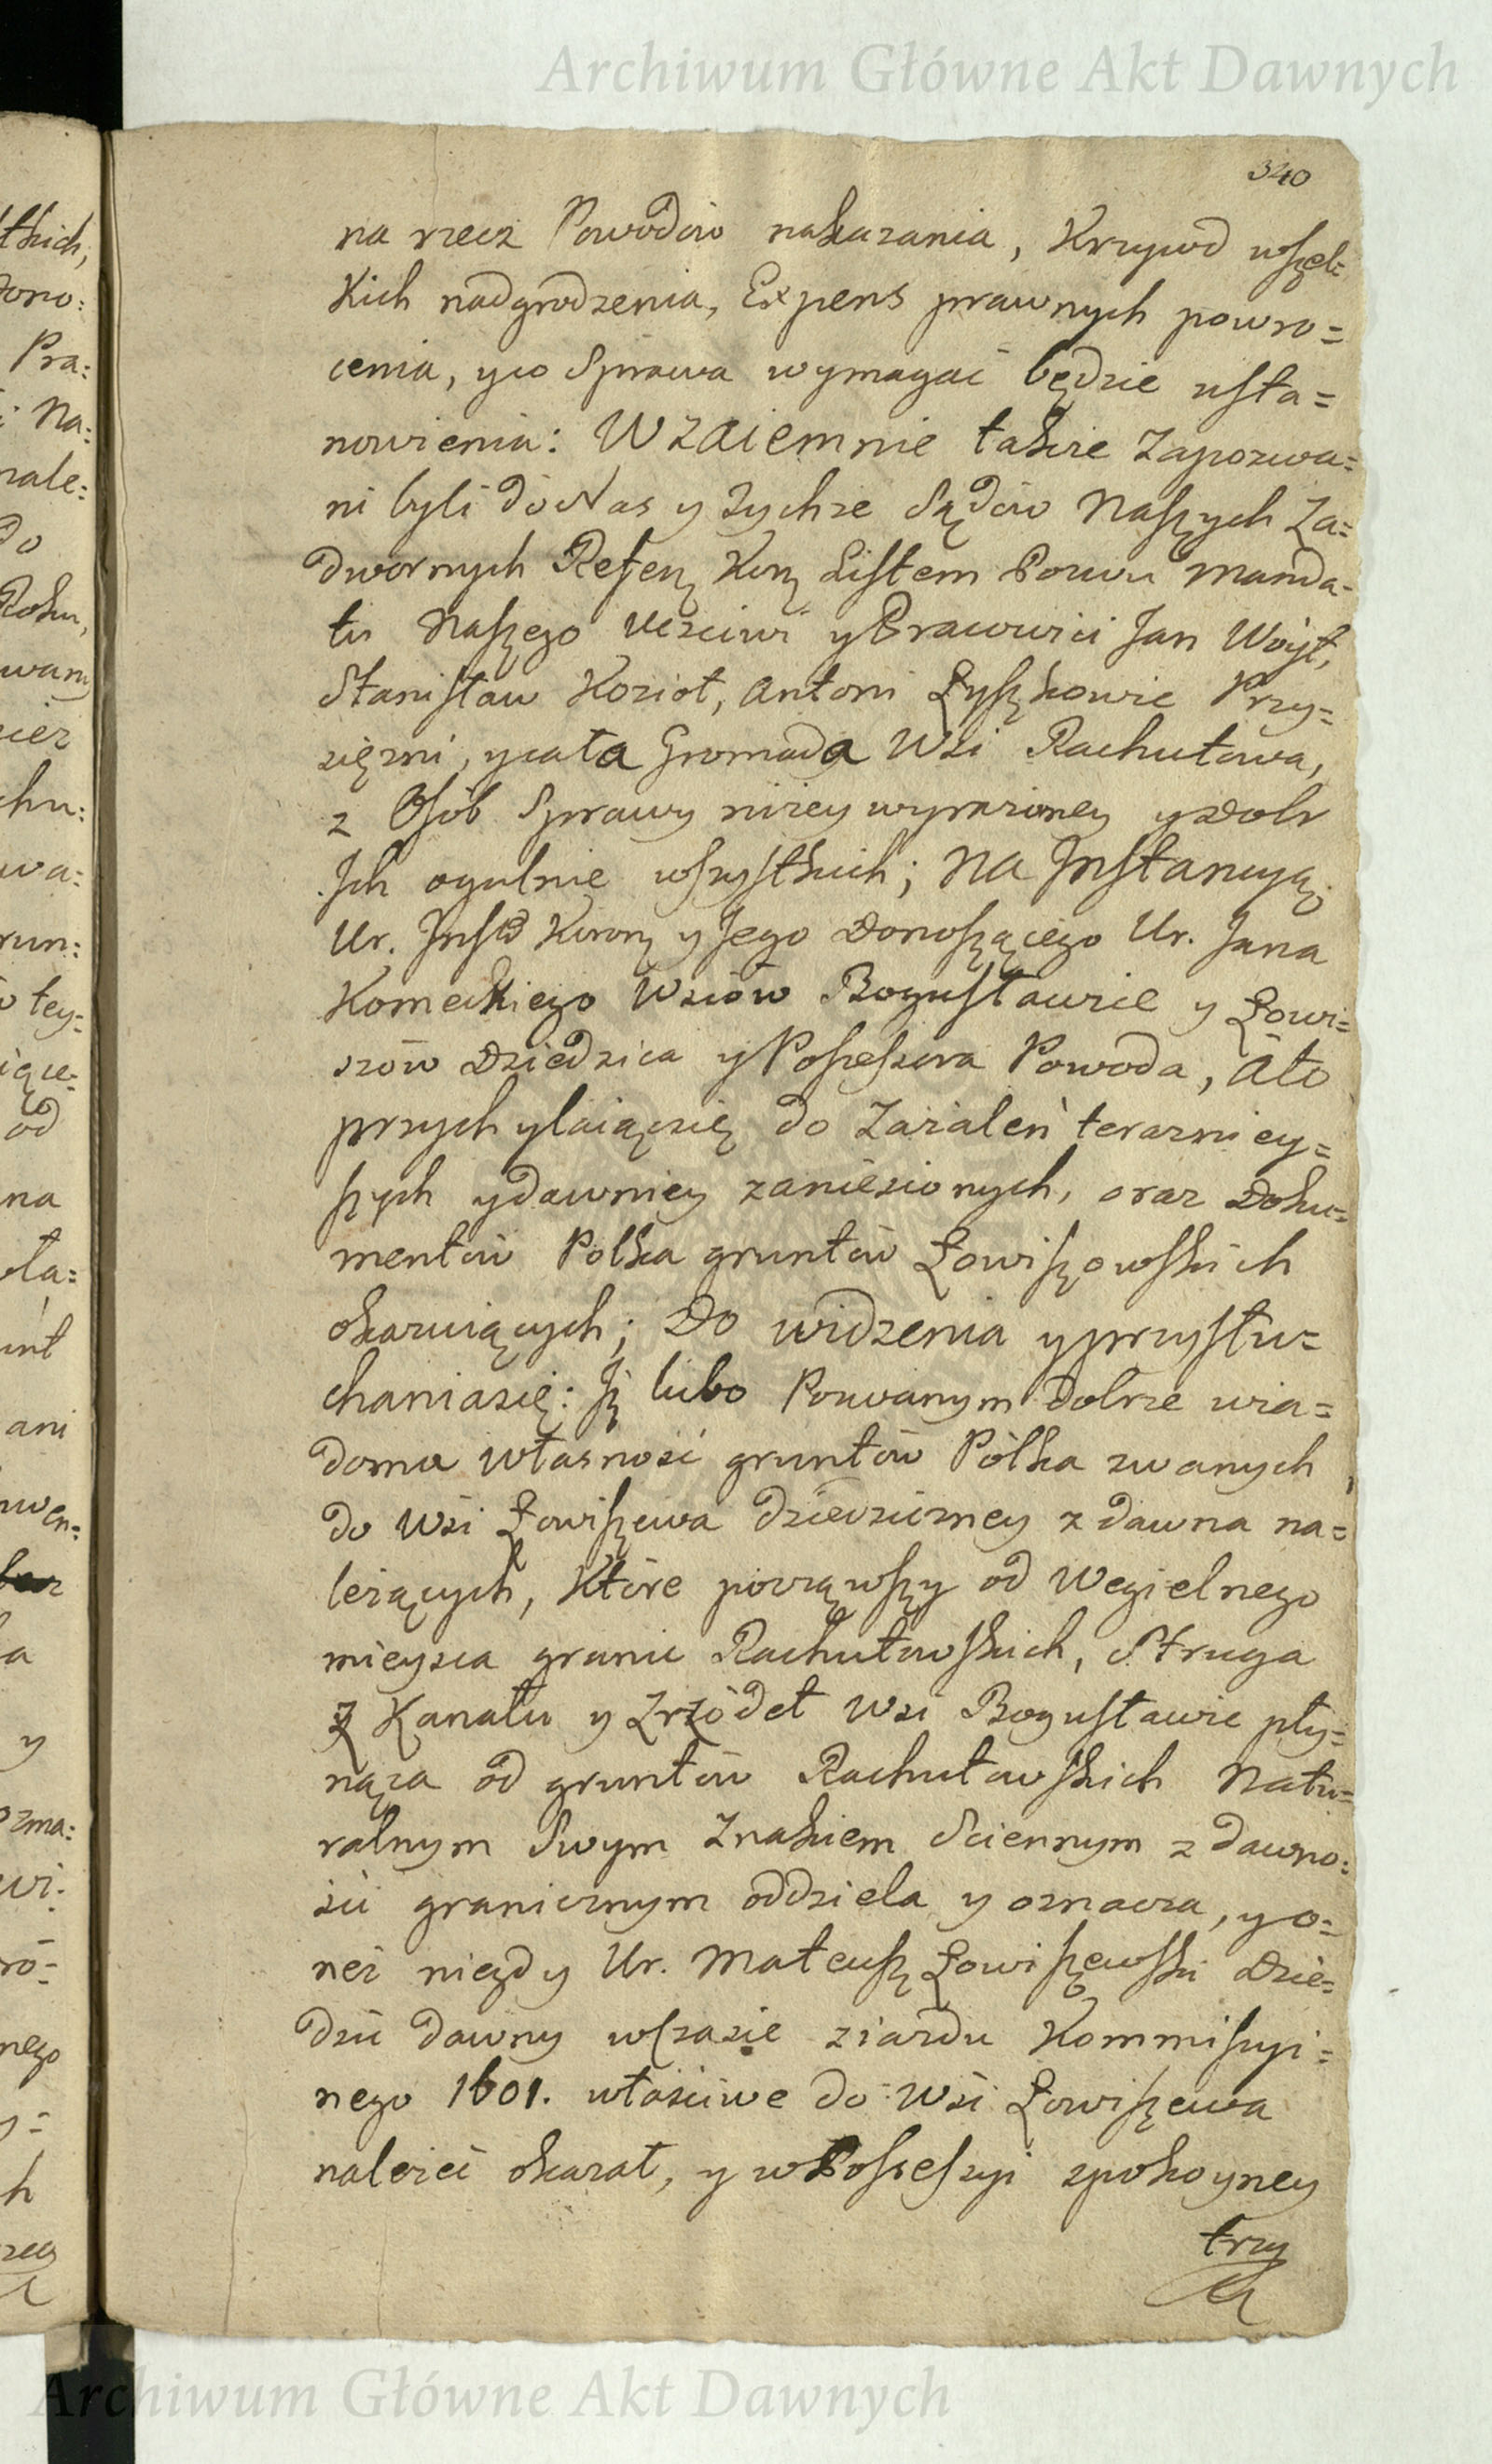 Archiwum Główne Akt Dawnych
340
na rzecz Powodów nakazania, Krzywd wszel=
kich nadgrodzenia, Expens prawnych powro=
cenia, y co Sprawa wymagać będzie usta=
nowienia: Wzaiemnie także Zapozwa=
ni byli do Nas y tychże Sądów Naszych Za=
dwornych Kor: Listem Pozwu Manda=
tu Naszego Uczciwi y Pracowici Jan Woyt,
Stanisław Kozioł, Antoni Łyszkowie Przy=
siężni, y cała Gromada Wsi Rachutowa,
z Osób Sprawy niżey wyrażoney y Dobr
Ich ogulnie wszystkich; Na Instancyą
Ur. Inst Koron y Jego Donoszącego Ur. Jana
Komeckiego Wsiów Bogusławic y Łowi=
szów Dziedzica y Possessora Powoda, Ato
przychylaiąc się do Zażaleń terazniey=
szych y dawniey zaniesionych, oraz Doku=
mentów Polka gruntów Łowiszowskich
okazuiących; Do widzenia y przysłu=
chania się: Iż lubo Pozwanym dobrze wia=
doma własność gruntów Pólka zwanych
do Wsi Łowiszewa dziedziczney z dawna na=
leżących, Które począwszy od Węgielnego
mieysca granic Rachutowskich, Struga
z Kanału y Zrzódeł Wsi Bogusławic pły=
nąca od gruntów Rachutowskich Natu=
ralnym Swym Znakiem Sciennym z dawno=
ści granicznym oddziela y oznacza, y o=
neż niegdy Ur. Mateusz Łowiszewski Dzie=
dzic dawny w czasie ziazdu Kommissyi=
nego 1601. właściwe do Wsi Łowiszewa
należeć okazał, y w Possessyi spokoyney
trzy
Archiwum Główne Akt Dawnych